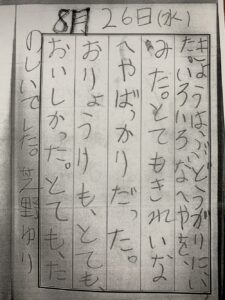 8月26日(水)
きょうは、ぶどうがりにい
た。いろいろなへやを
みた。とてもきれいな
へやばっかりだった。
おりょうりも、とても、
おいしかった。とても、た
のしいでした。芝野ゆり